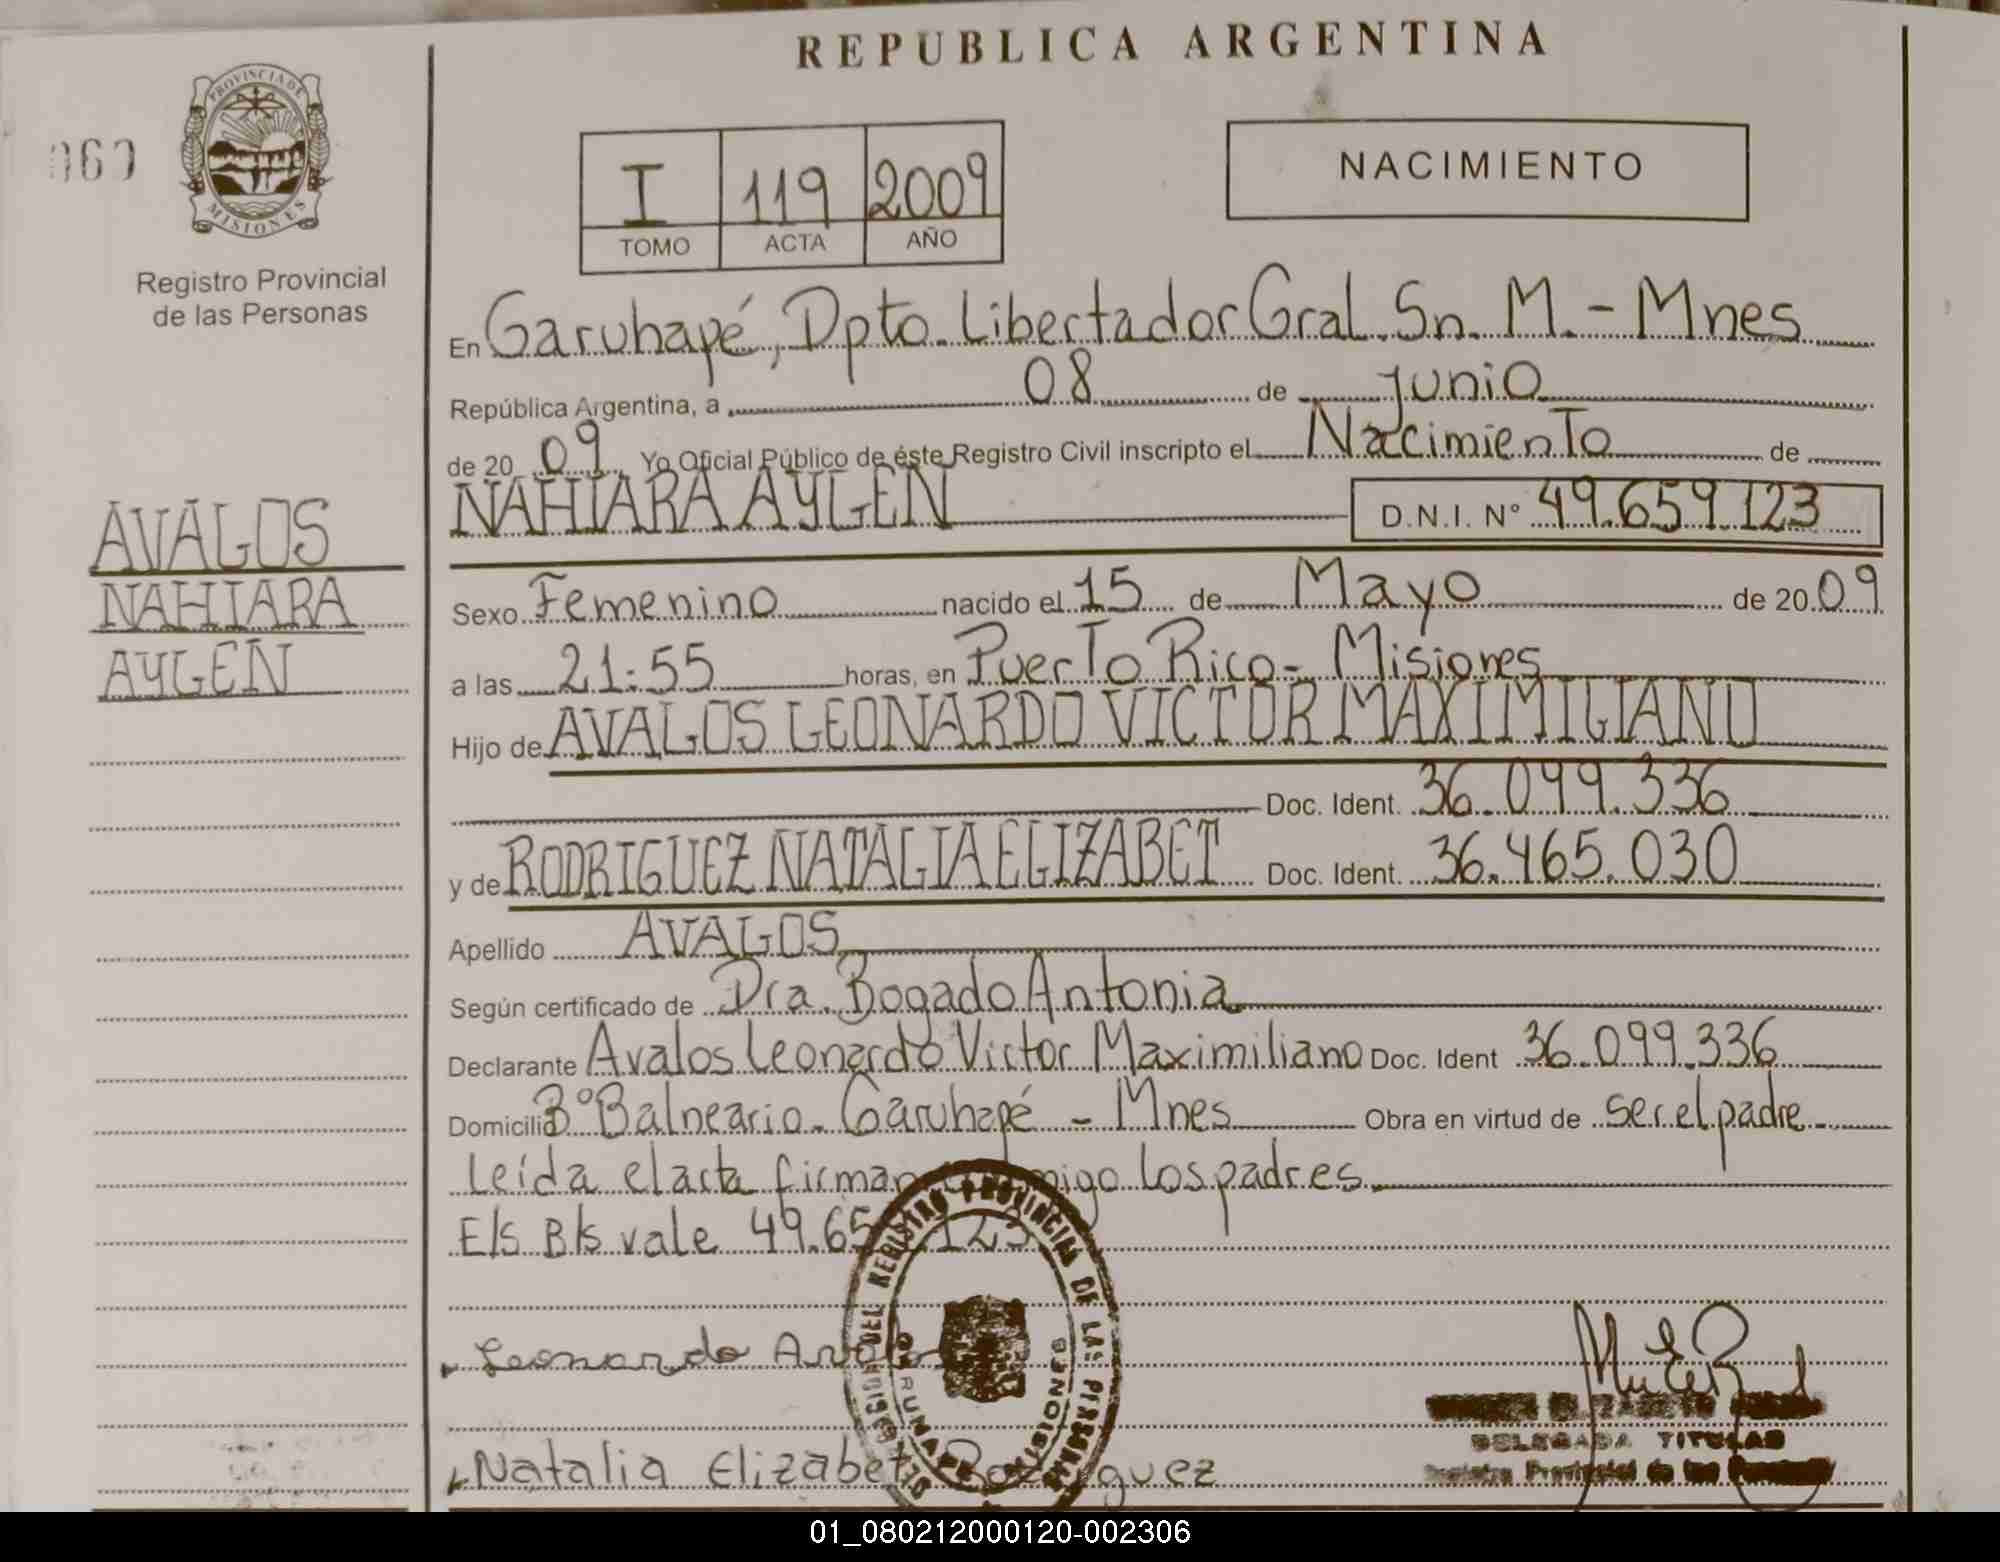 REPUBLICA ARGENTINA
PROVINCIA DE
MISIONES
060
Registro Provincial
de las Personas
I 119 2009
TOMO ACTA AÑO
NACIMIENTO
En Garuhapé, Dpto. Libertador Gral. Sn. M. - Mnes
República Argentina, a 08 de junio
de 20 09 Yo Oficial Público de éste Registro Civil inscripto el Nacimiento de
NAHIARA AYLEN D.N.I. Nº 49.659.123
AVALOS
NAHIARA
AYLEN
Sexo Femenino nacido el 15 de Mayo de 2009
a las 21:55 horas, en Puerto Rico - Misiones
Hijo de AVALOS LEONARDO VICTOR MAXIMILIANO
Doc. Ident. 36.099.336
y de RODRIGUEZ NATALIA ELIZABET Doc. Ident. 36.465.030
Apellido AVALOS
Según certificado de Dra. Bogado Antonia
Declarante Avalos Leonardo Victor Maximiliano Doc. Ident 36.099.336
Domicilio Bº Balneario - Garuhapé - Mnes Obra en virtud de ser el padre -
Leída el acta firman los padres.
E/S B/s vale 49.65 123
DEL REGISTRO PROVINCIAL DE LAS PERSONAS
MISIONES
Leonardo Avalos
Natalia Elizabet Rodriguez
DELEGADA TITULAR
Registro Provincial de las Personas
01_080212000120-002306